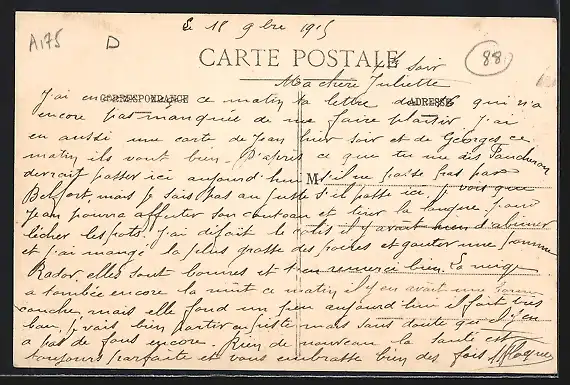 Le 18 9bre 1915
A175
D
88
CARTE POSTALE
soir
Ma chère Juliette
CORRESPONDANCE
ADRESSE
J'ai eu ce matin ta lettre du qui n'a
encore pas manquée de me faire plaisir j'ai
eu aussi une carte de Jean hier soir et de Georges ce
matin ils vont bien. D'après ce que tu me dis
devrait passer ici aujourd'hui M s'il ne passe pas par
Belfort, mais je sais pas au juste s'il passe ici, je vois que
Jean pourra affuter son couteau et tirer la langue pour
lécher les pots. J'ai le colis il y avait rien d'abimer
et j'ai mangé la plus grosse des poires et gouter une pomme
Rador, elles sont bonnes et t'en remercie bien. La neige
a tombée encore la nuit ce matin il y en avait une bonne
couche, mais elle fond un peu aujourd'hui il fait très
bon, je vais bien partir en piste mais sans doute qu'il y en
a pas de fous encore. Rien de nouveau la santé est
toujours parfaite et vous embrasse bien des fois